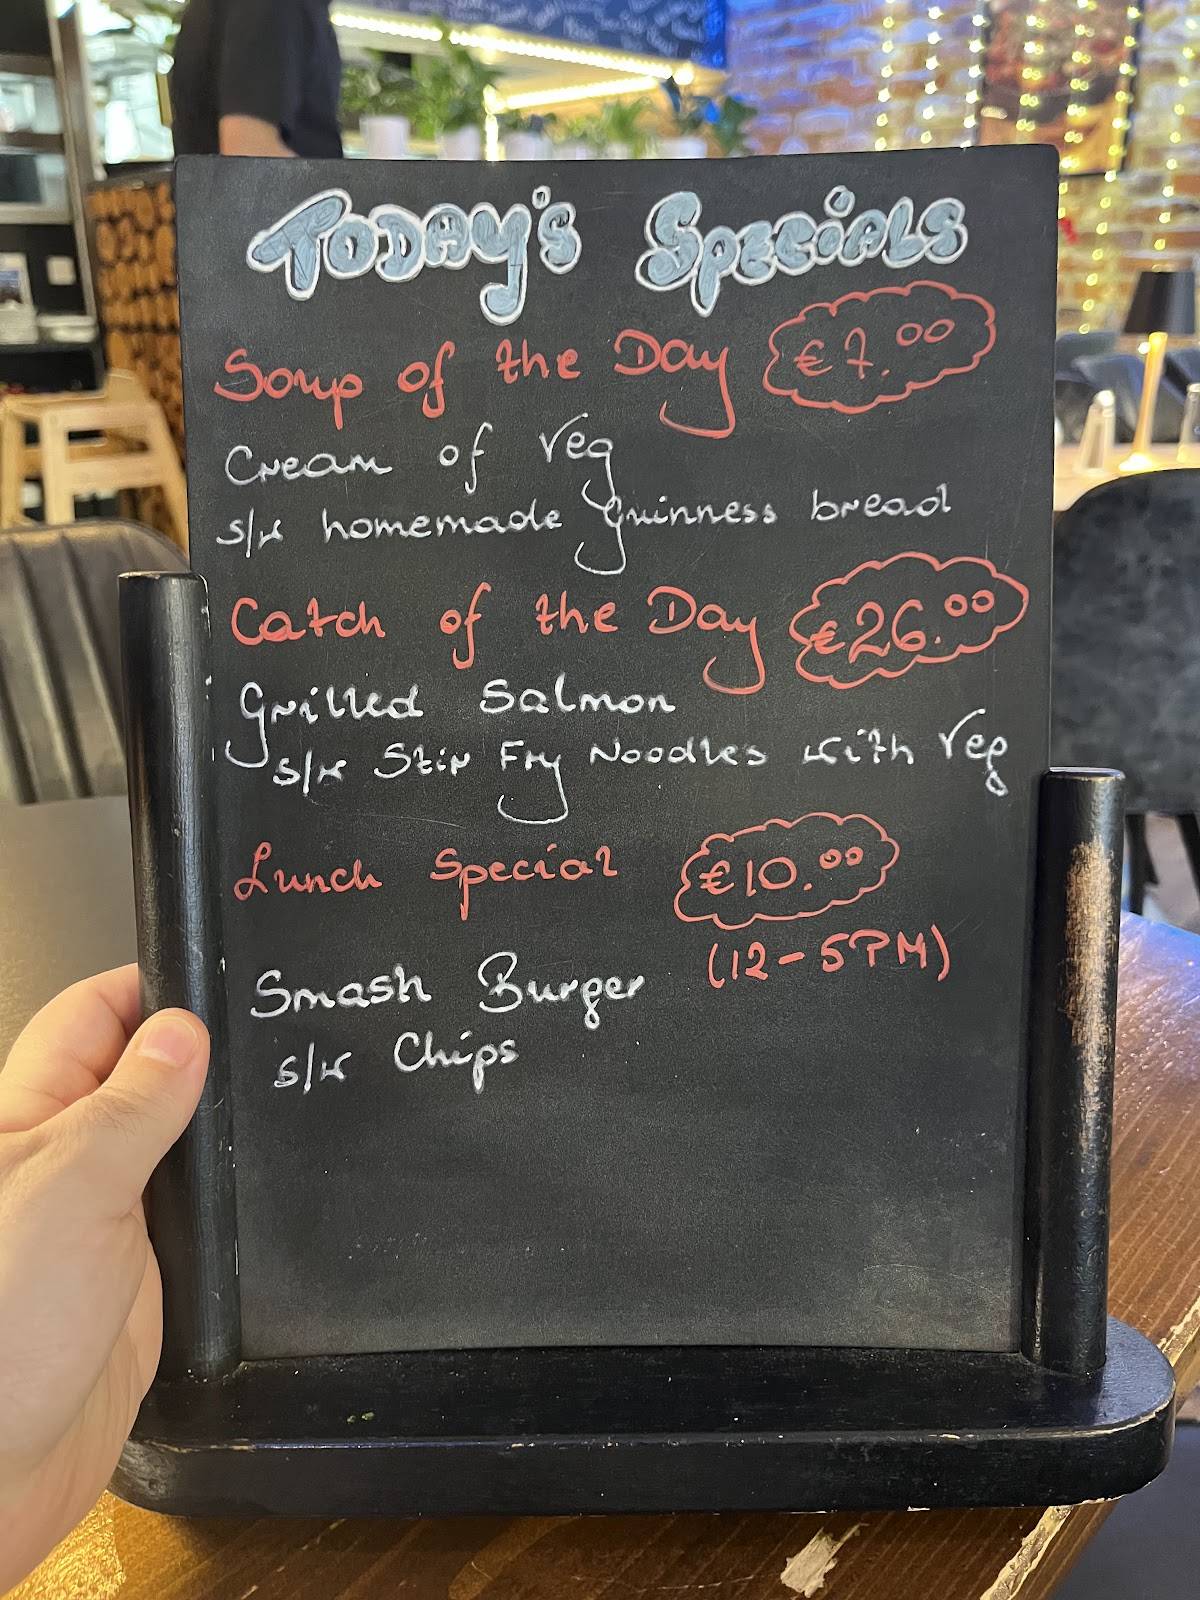 Today's Specials
Soup of the Day €7.00
Cream of Veg
s/w homemade Guinness bread
Catch of the Day €26.00
Grilled Salmon
s/w Stir Fry Noodles with Veg
Lunch Special €10.00
(12-5PM)
Smash Burger
s/w Chips